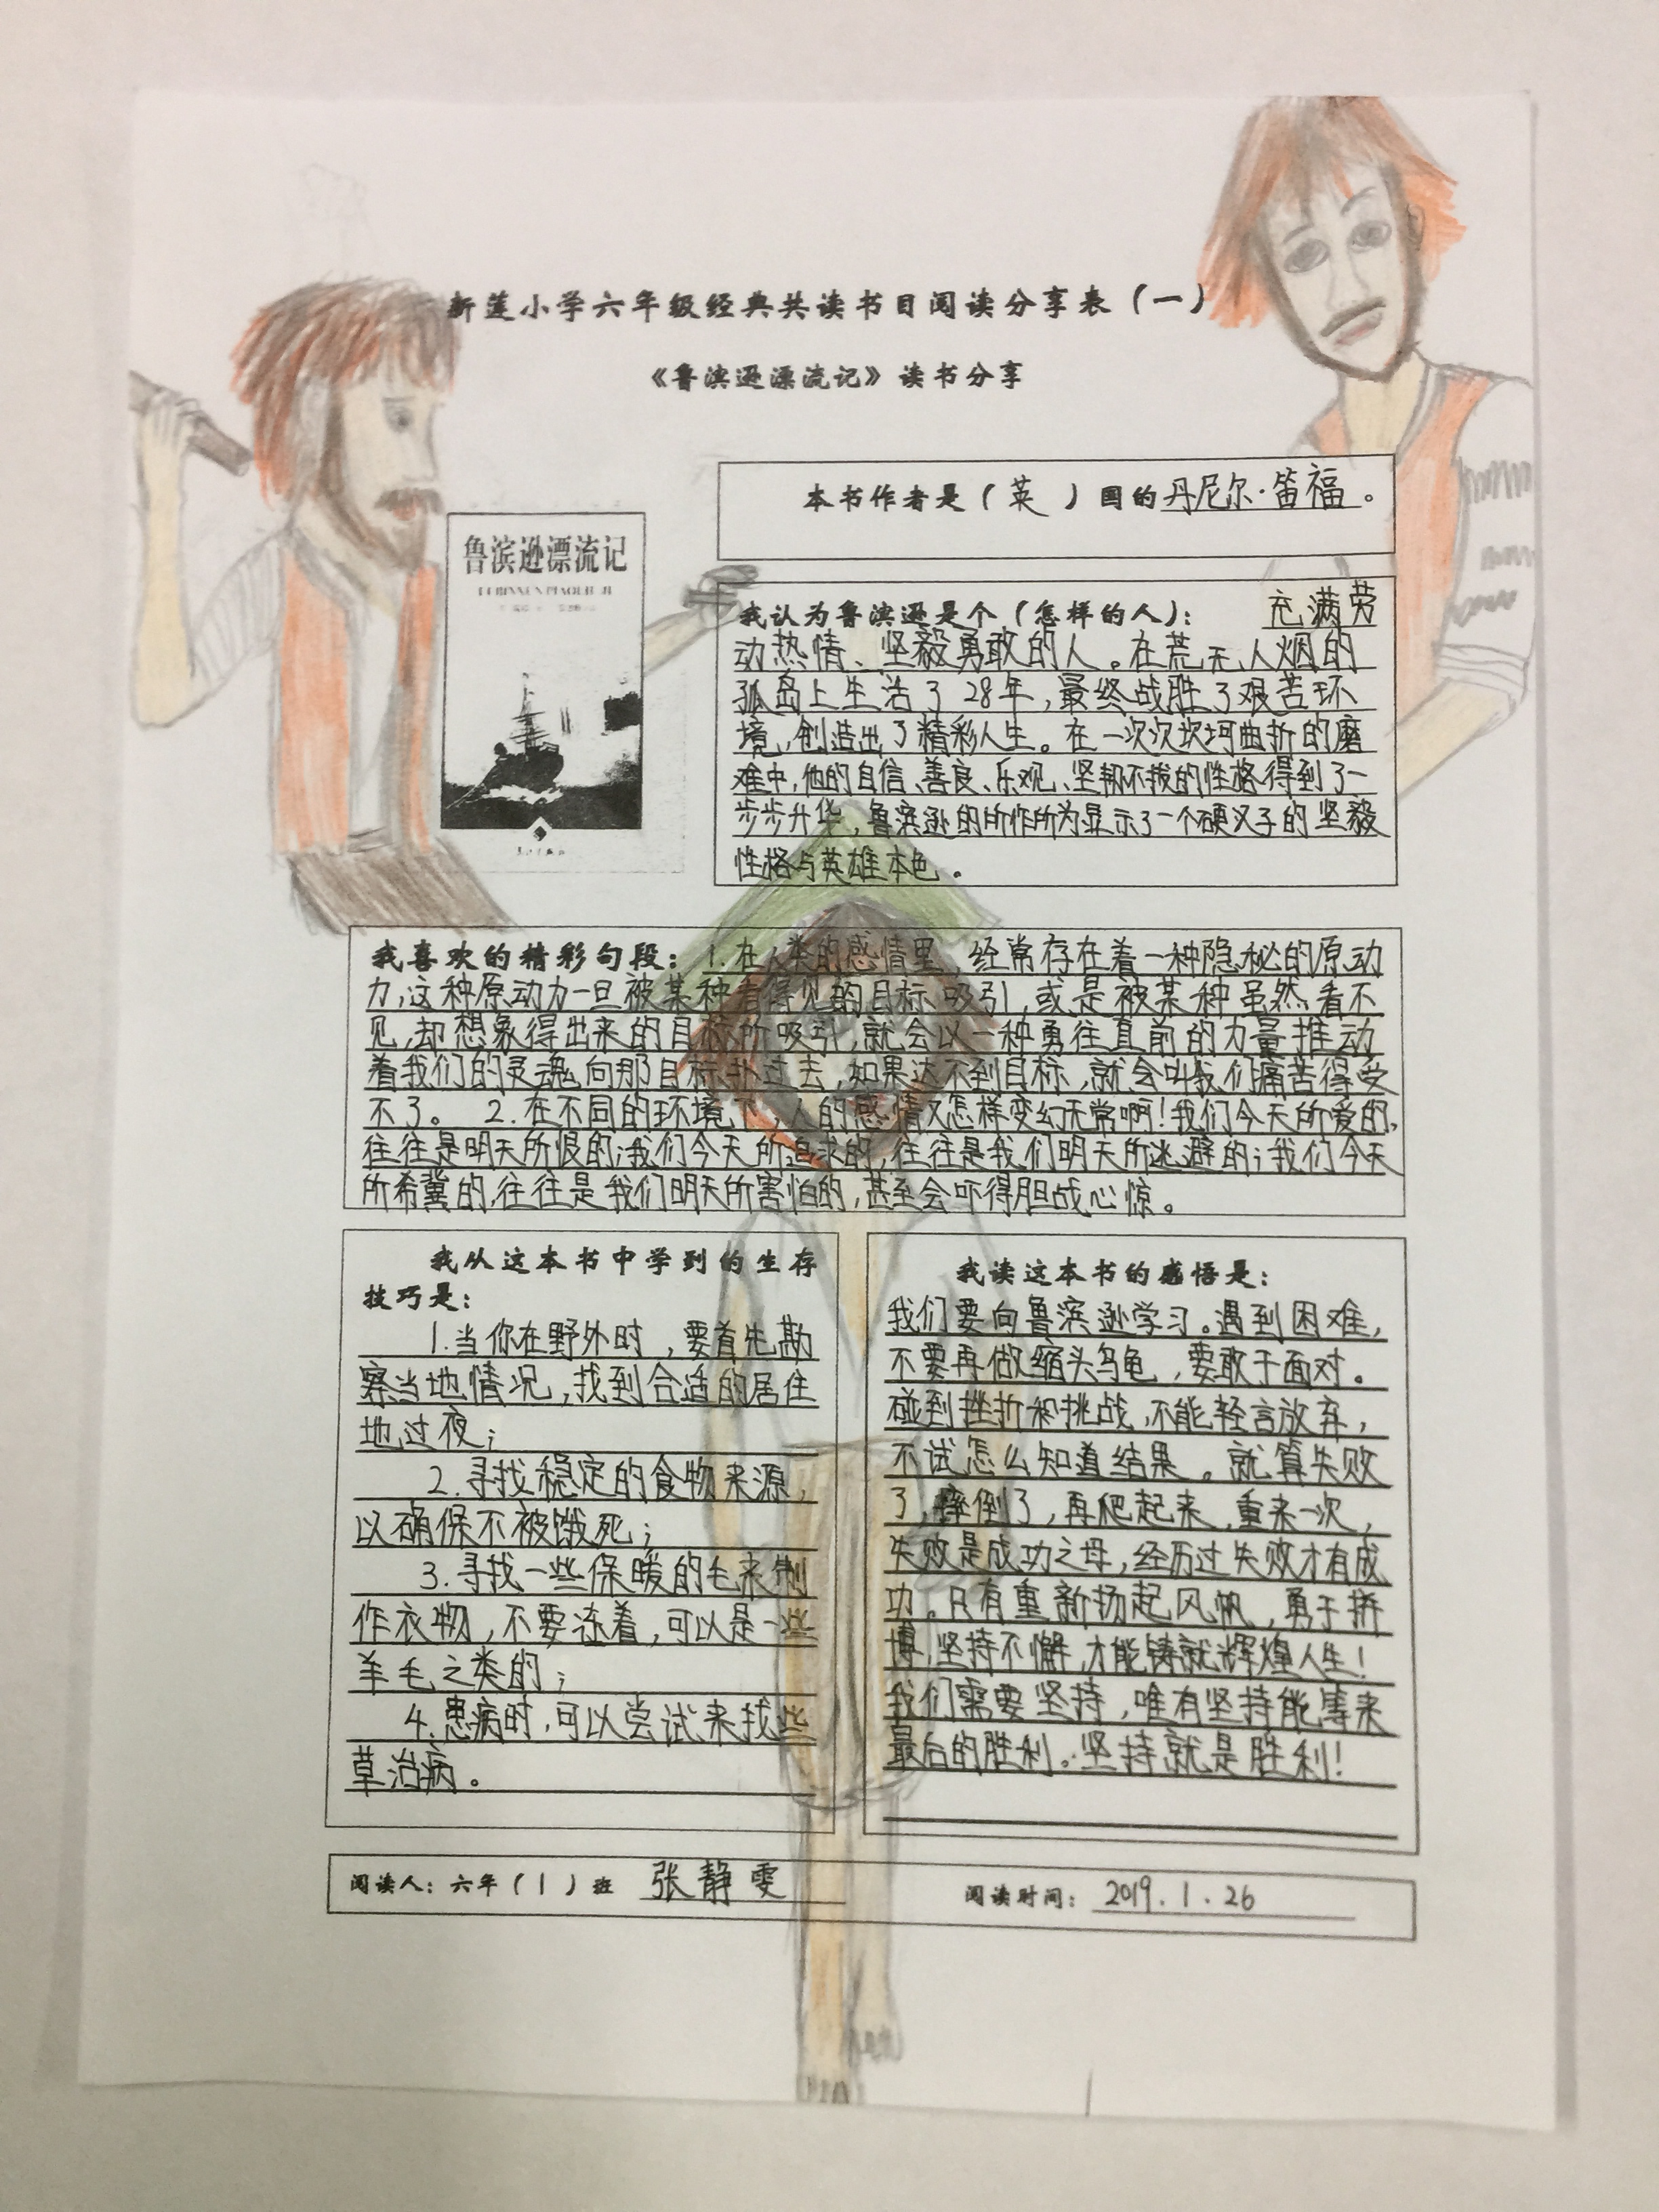 新莲小学六年级经典共读书目阅读分享表（一）
《鲁滨逊漂流记》读书分享
本书作者是（英）国的丹尼尔·笛福。
鲁滨逊漂流记
我认为鲁滨逊是个（怎样的人）：充满劳
动热情、坚毅勇敢的人。在荒无人烟的
孤岛上生活了28年，最终战胜了艰苦环
境，创造出了精彩人生。在一次次坎坷曲折的磨
难中，他的自信、善良、乐观、坚韧不拔的性格得到了一
步步升华，鲁滨逊的所作所为显示了一个硬汉子的坚毅
性格与英雄本色。
我喜欢的精彩句段：1.在人类的感情里，经常存在着一种隐秘的原动
力，这种原动力一旦被某种看得见的目标吸引，或是被某种虽然看不
见，却想象得出来的目标所吸引，就会以一种勇往直前的力量推动
着我们的灵魂向那目标扑过去，如果达不到目标，就会叫我们痛苦得受
不了。 2.在不同的环境下，人的感情又怎样变幻无常啊！我们今天所爱的，
往往是明天所恨的；我们今天所追求的，往往是我们明天所逃避的；我们今天
所希冀的，往往是我们明天所害怕的，甚至会吓得胆战心惊。
我从这本书中学到的生存
技巧是：
1.当你在野外时，要首先勘
察当地情况，找到合适的居住
地过夜；
2.寻找稳定的食物来源，
以确保不被饿死；
3.寻找一些保暖的毛来制
作衣物，不要冻着，可以是一些
羊毛之类的；
4.患病时，可以尝试来找些
草治病。
我读这本书的感悟是：
我们要向鲁滨逊学习。遇到困难，
不要再做缩头乌龟，要敢于面对。
碰到挫折和挑战，不能轻言放弃，
不试怎么知道结果。就算失败
了，摔倒了，再爬起来，重来一次，
失败是成功之母，经历过失败才有成
功。只有重新扬起风帆，勇于拼
搏，坚持不懈，才能铸就辉煌人生！
我们需要坚持，唯有坚持能等来
最后的胜利。坚持就是胜利！
阅读人：六年（1）班 张静雯
阅读时间：2019.1.26